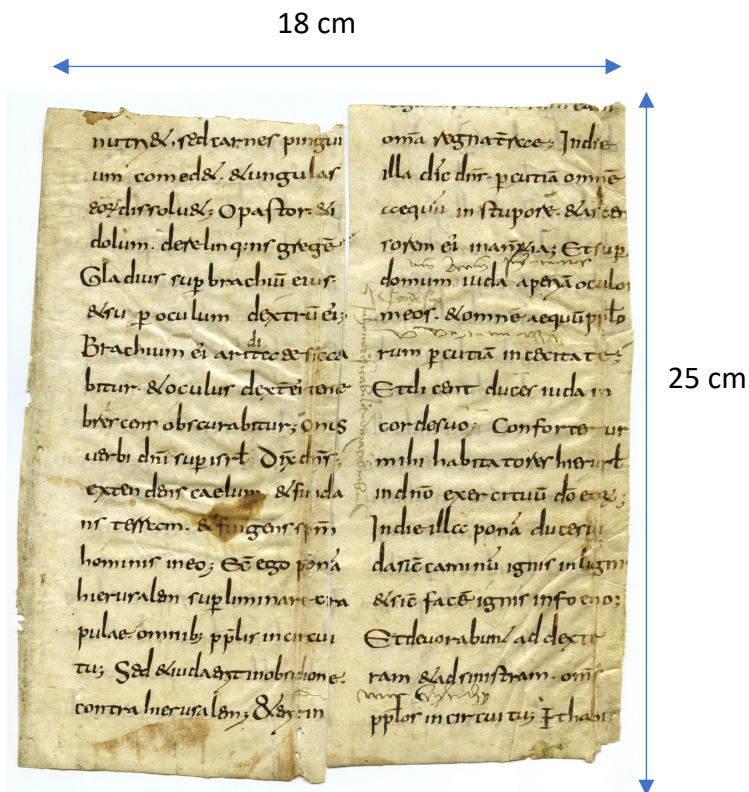 18 cm
25 cm
nutri&. sed carnes pingui
um comed&. & ungulas
eoꝝ dissolu&; O pastor. & i
dolum. derelinqꝫns gregē
Gladius sup brachiū eius.
& sup oculum dextrū ei;
Brachium ei ariditate sicca
bitur. & oculus dext ei tene
brescens obscurabitur; Onus
uerbi dn̄i sup isrł. Dix̄ dn̄s;
extendens caelum. & funda
ns terram. & fingens sp̄m
hominis in eo; ego ponā
hierusalem supliminare cra
pulae omnibꝫ pplis in circui
tu; Sed & iuda erit in obsidione
contra hierusalem; & erit in
om̄a regna terre; In die
illa dic̄ dn̄s. pcutiā omnē
aequū in stuporē. & ascen
sorem ei in am̄tia; Et sup
domum iuda aperiā oculos
meos. & omne aequū pplo
rum pcutiā in cecitate;
Et dicent duces iuda in
corde suo; Confortentur
mihi habitatores hierusł
in dn̄o exercituū dō eoꝝ;
In die illa ponā duces iu
da sic̄ caminū ignis in lignis
& sic̄ facē ignis in foeno;
Et deuorabunt ad dexte
ram & ad sinistram. om̄s
pplos in circuitu; Et habit